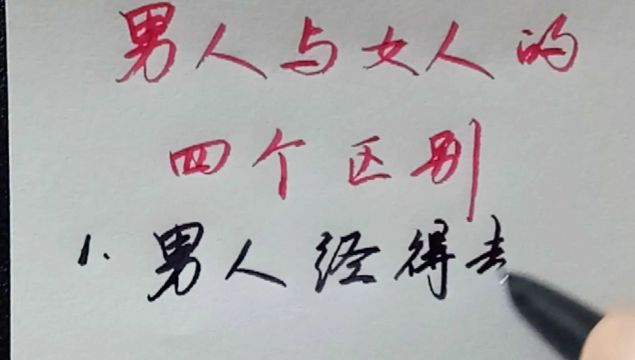 男人与女人的
四个区别
1. 男人经得